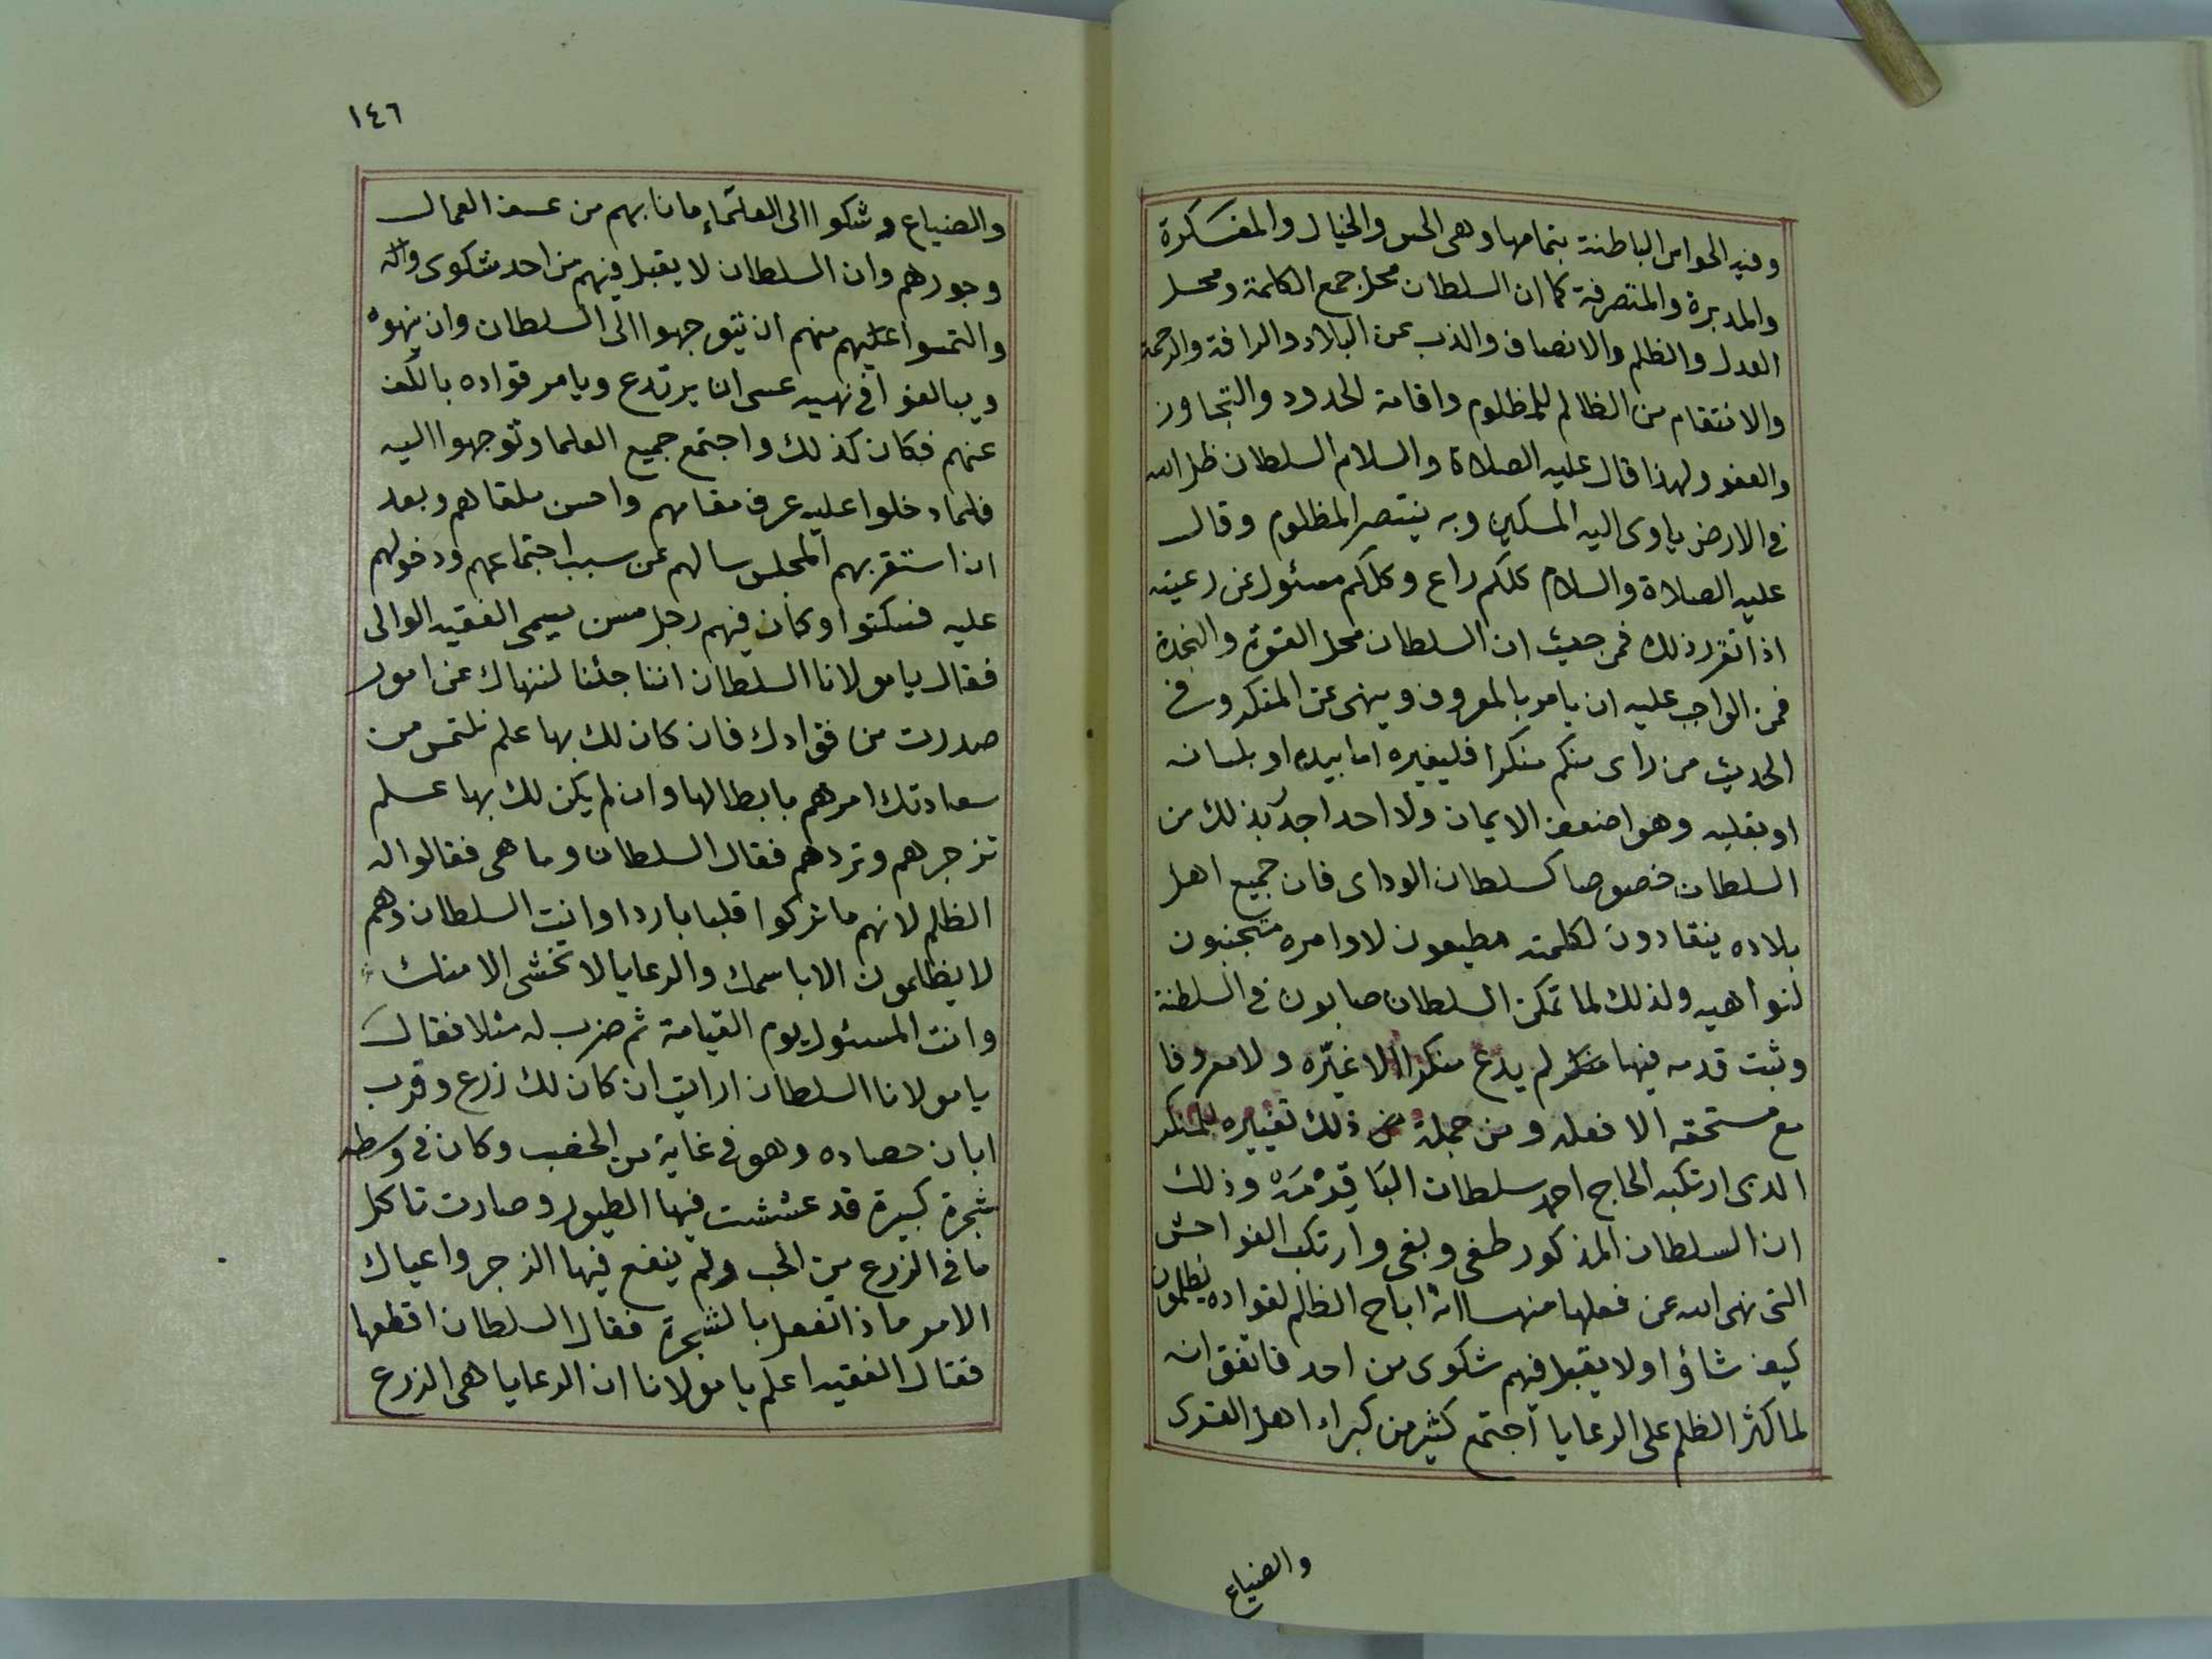 وفيه الحواس الباطنة بتمامها وهى الحس والخيال والمفكرة
والمدبرة والمتصرفة كما ان السلطان محل جمع الكلمة ومحل
العدل والظلم والانصاف والذب عن البلاد والرافة والرحمة
والانتقام من الظالم للمظلوم واقامة الحدود والتجاوز
والعفو ولهذا قال عليه الصلاة والسلام السلطان ظل الله
فى الارض ياوى اليه المسكين وبه ينتصر المظلوم وقال
عليه الصلاة والسلام كلكم راع وكلكم مسئول عن رعيته
اذا تقرر ذلك فمن حيث ان السلطان محل القوة والنجدة
فمن الواجب عليه ان يامر بالمعروف وينهى عن المنكر وفى
الحديث من راى منكم منكرا فليغيره اما بيده او بلسانه
او بقلبه وهو اضعف الايمان ولا احد اجدر بذلك من
السلطان خصوصا كسلطان الوداى فان جميع اهل
بلاده ينقادون لكلمته مطيعون لاوامره متجنبون
لنواهيه ولذلك لما تمكن السلطان صابون فى السلطنة
وثبت قدمه فيها لم يدع منكرا الا غيّره ولا معروفا
مع مستحقه الا فعله ومن جملة ذلك تغييره للمنكر
الذى ارتكبه الحاج احمد سلطان البَاقِرْمَه وذلك
ان السلطان المذكور طغى وبغى وارتكب الفواحش
التى نهى الله عن فعلها منها انه اباح الظلم لقواده يظلمون
كيف شاؤا ولا يقبل فيهم شكوى من احد فاتفق انه
لما كثر الظلم على الرعايا اجتمع كثير من كبراء اهل القرى
والضياع
١٤٦
والضياع وشكوا الى العلماء ما نابهم من عسف العمال
وجورهم وان السلطان لا يقبل فيهم من احد شكوى وانه
والتمسوا منهم ان يتوجهوا الى السلطان وان ينهوه
ويبالغوا فى نهيه عسى ان يرتدع ويامر قواده بالكف
عنهم فكان كذلك واجتمع جميع العلما وتوجهوا اليه
فلما دخلوا عليه عرف مقامهم واحسن ملقاهم وبعد
ان استقر بهم المجلس سالهم عن سبب اجتماعهم ودخولهم
عليه فسكتوا وكان فيهم رجل مسن يسمى الفقيه الوالى
فقال يا مولانا السلطان اننا جئنا لننهاك عن امور
صدرت من قوادك فان كان لك بها علم نلتمس من
سعادتك امرهم بابطالها وان لم يكن لك بها علم
تزجرهم وتردهم فقال السلطان وما هى فقالوا له
الظلم لانهم ما تركوا قلبا باردا وانت السلطان وهم
لا يظلمون الا باسمك والرعايا لا تخشى الا منك
وانت المسئول يوم القيامة ثم ضرب له مثلا فقال
يا مولانا السلطان ارايت ان كان لك زرع وقرب
ابان حصاده وهو فى غاية من الخصب وكان فى وسطه
شجرة كبيرة قد عششت فيها الطيور وصارت تاكل
ما فى الزرع من الحب ولم ينفع فيها الزجر واعياك
الامر ماذا تفعل بالشجرة فقال السلطان اقطعها
فقال الفقيه اعلم يا مولانا ان الرعايا هى الزرع